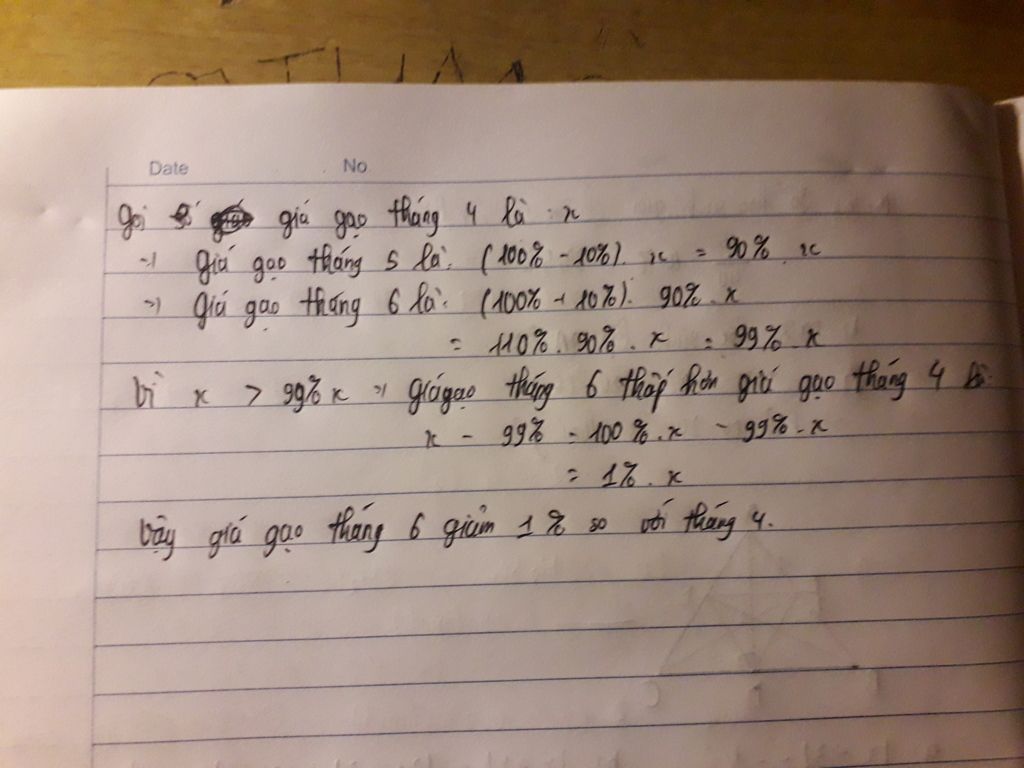 Date No
gọi giá gạo tháng 4 là : x
=> Giá gạo tháng 5 là: (100% - 10%). x = 90% . x
=> Giá gạo tháng 6 là: (100% + 10%). 90% . x
= 110% . 90% . x = 99% . x
Vì x > 99% x => Giá gạo tháng 6 thấp hơn giá gạo tháng 4 là:
x - 99% = 100% . x - 99% . x
= 1% . x
Vậy giá gạo tháng 6 giảm 1% so với tháng 4.